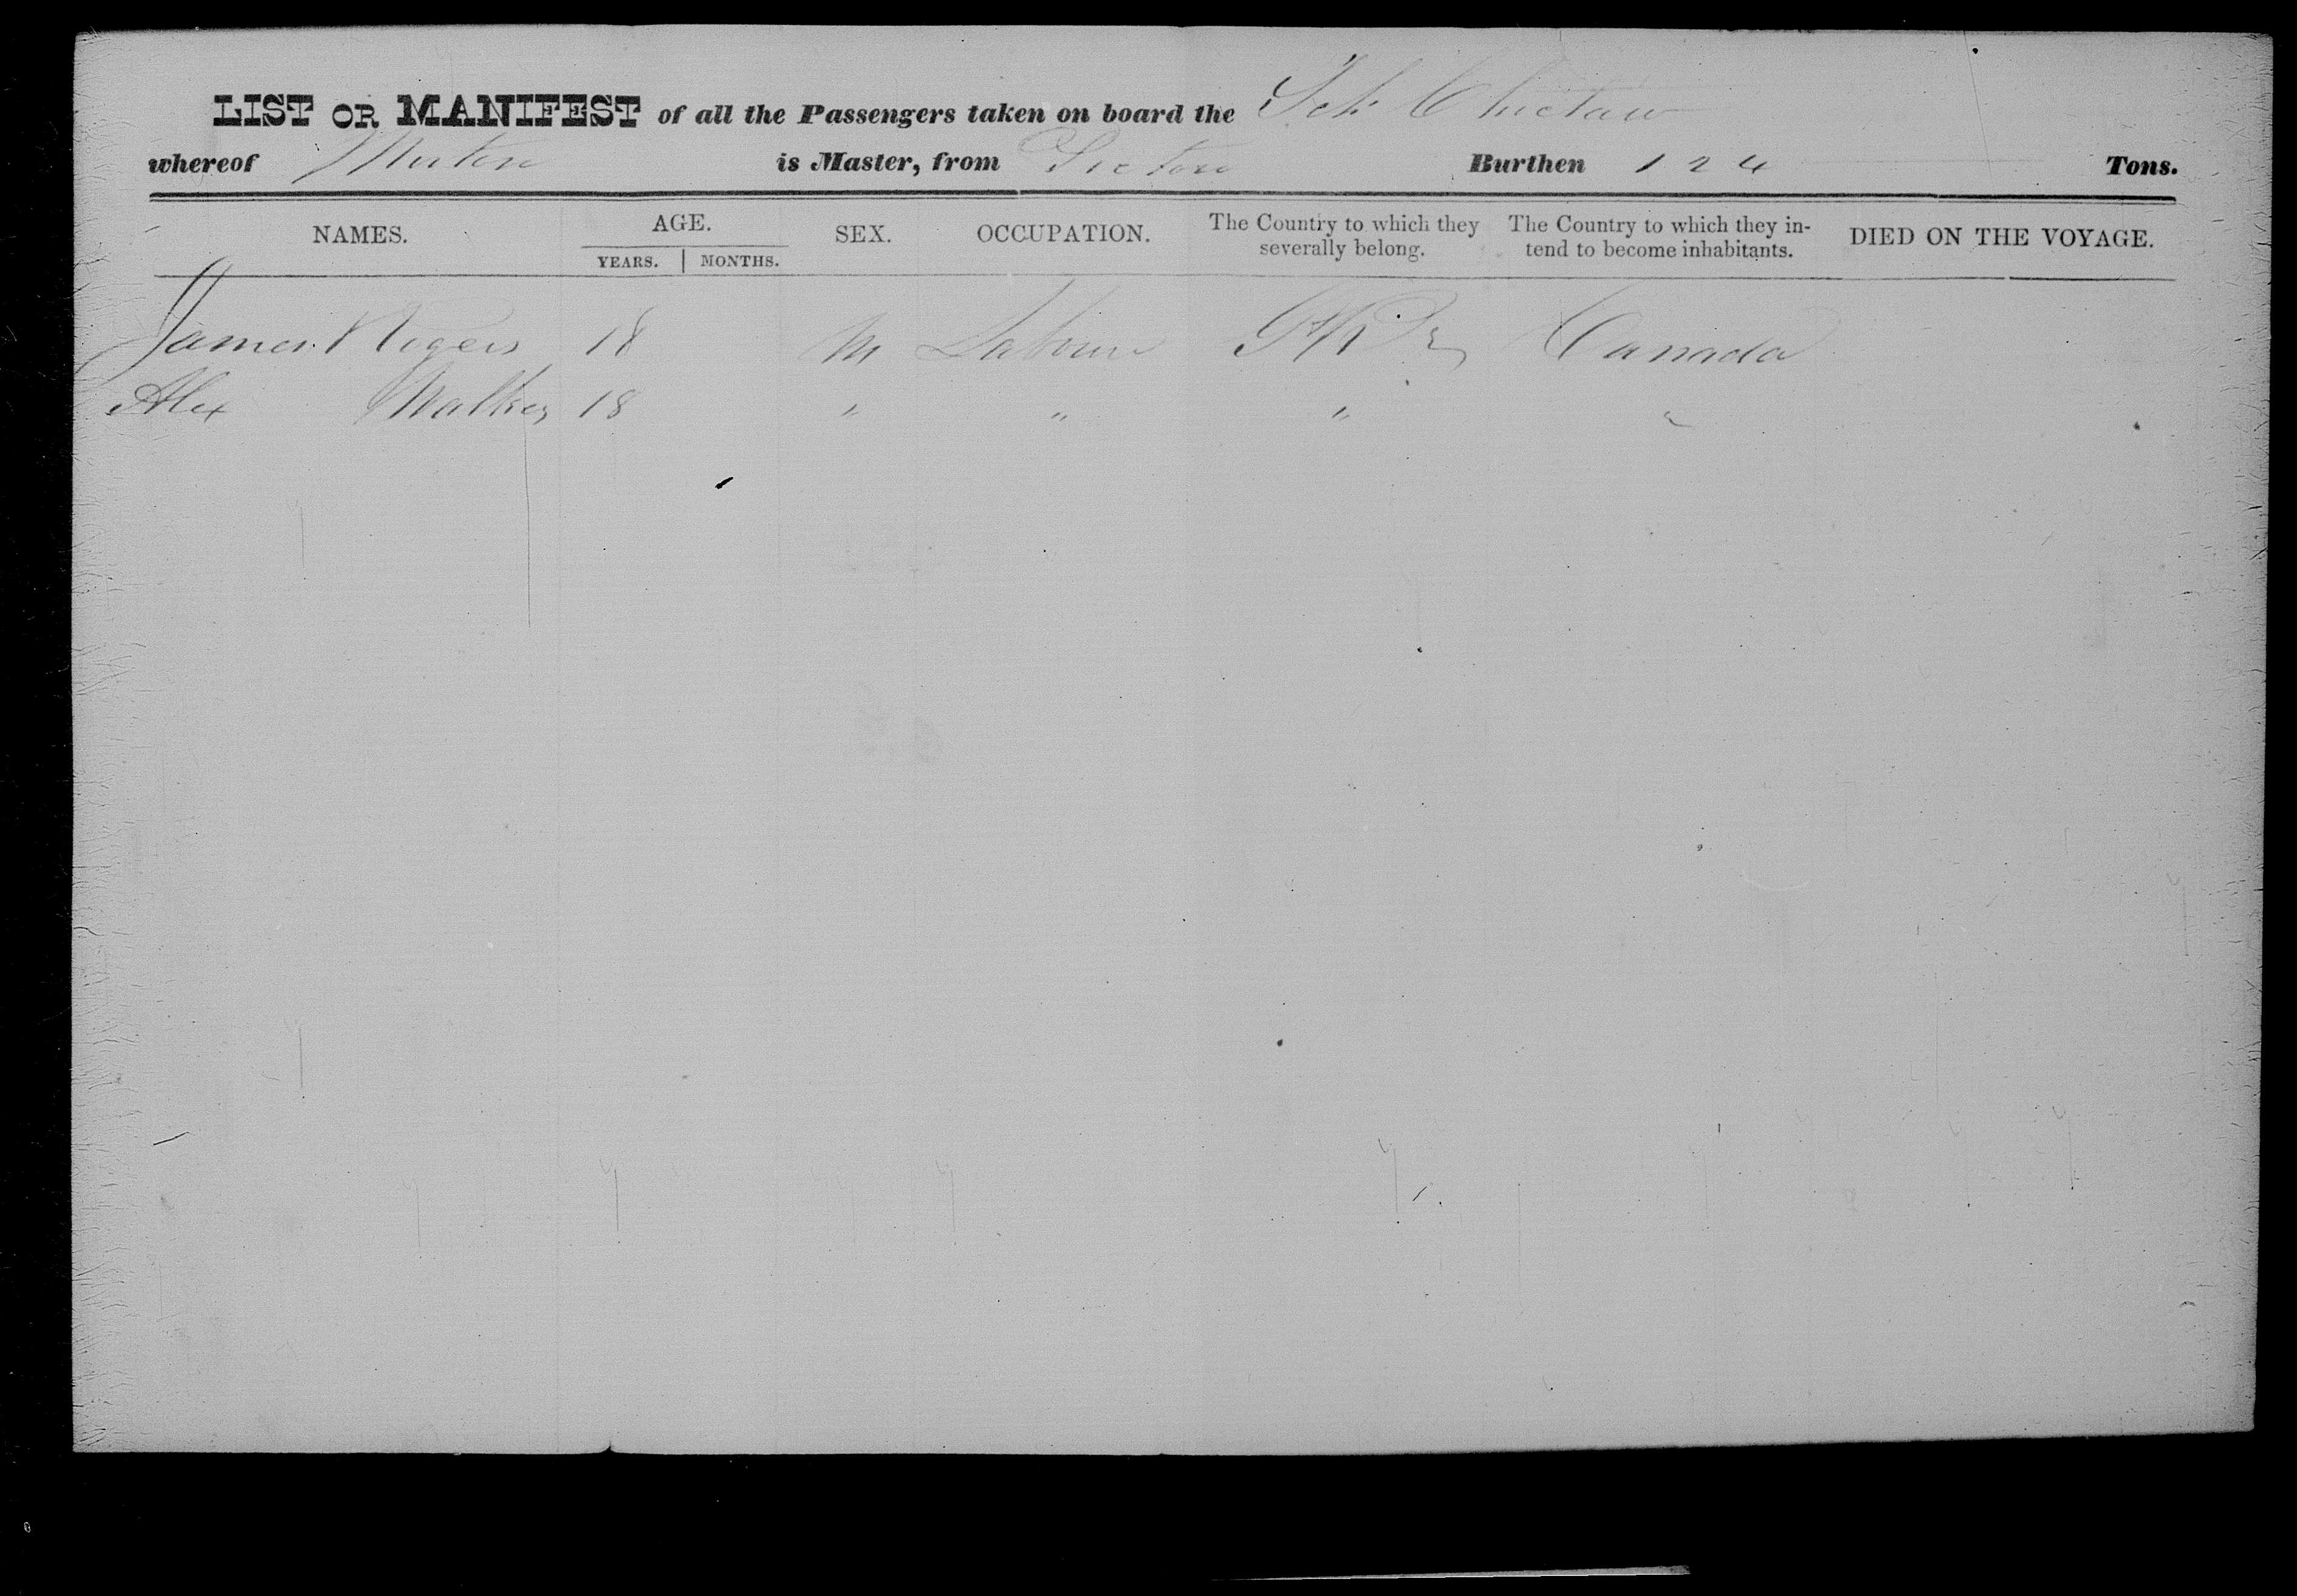 LIST OR MANIFEST of all the Passengers taken on board the Sch Chictaw
whereof is Master, from Pictou Burthen 124 Tons.
NAMES. AGE. SEX. OCCUPATION. The Country to which they severally belong. The Country to which they intend to become inhabitants. DIED ON THE VOYAGE.
YEARS. MONTHS.
James Rogers 18 M Labour Canada
Alex Walker 18 " " " "